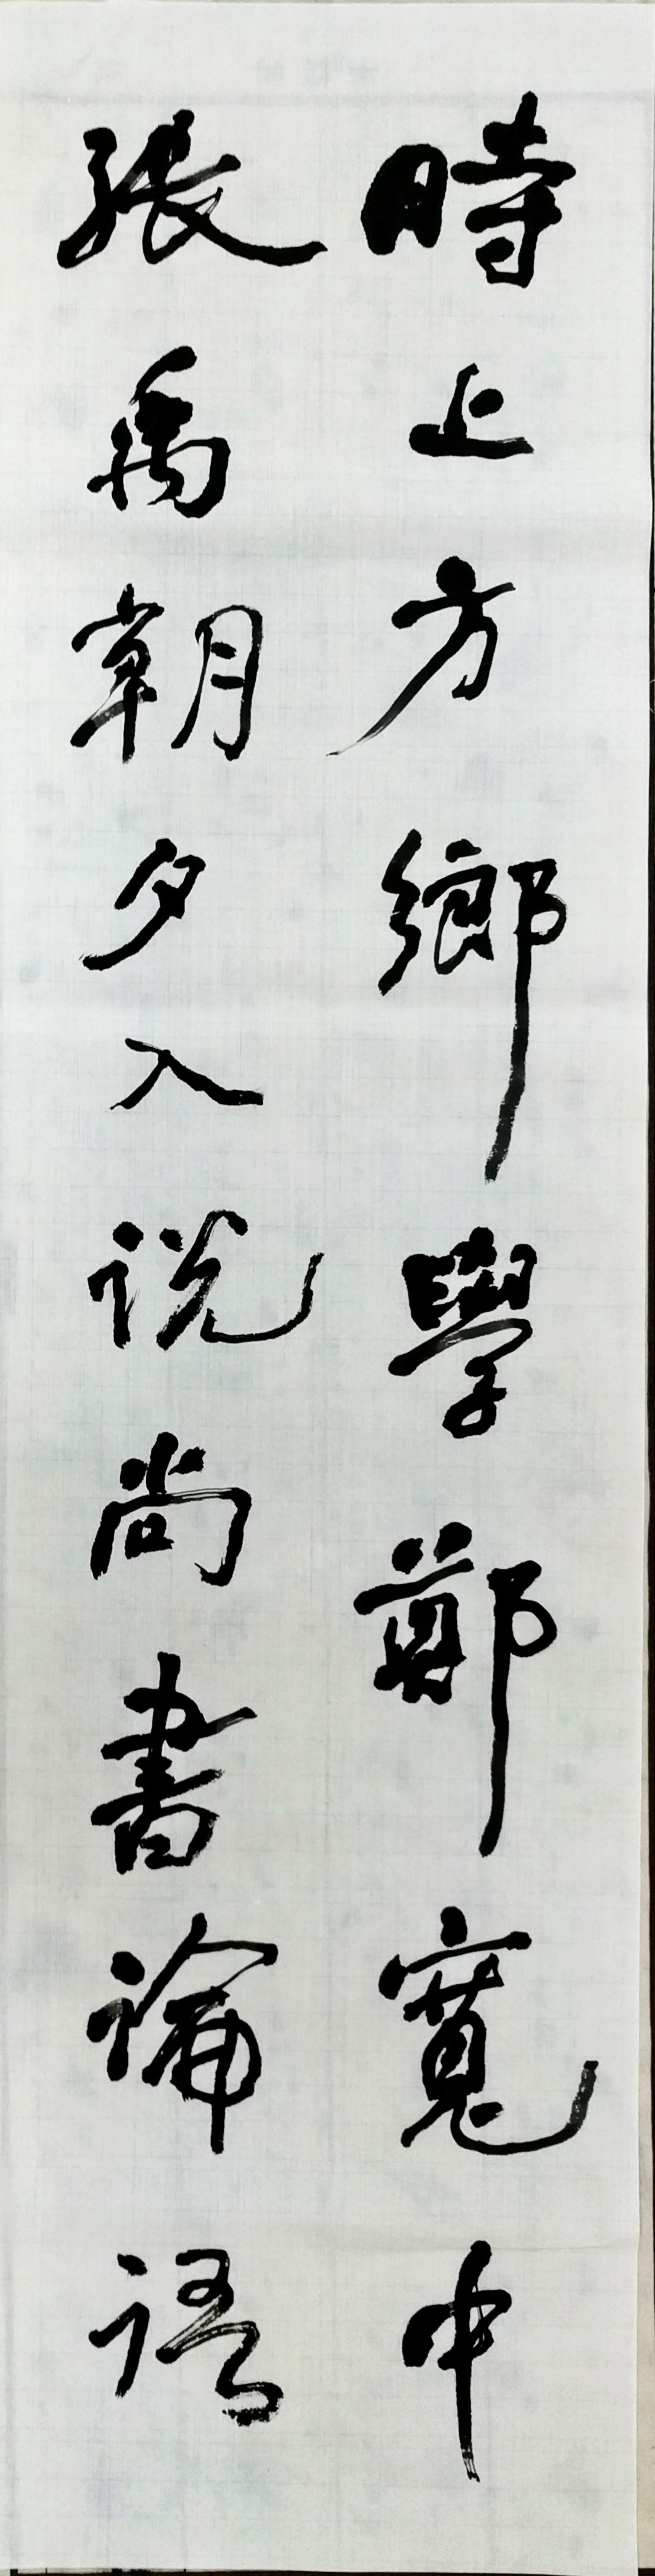 時上方鄉學鄭寬中
張禹朝夕入説尚書論語